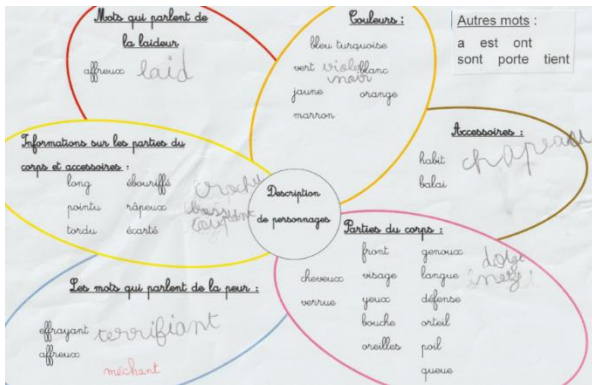 Mots qui parlent de
la laideur
affreux laid
Couleurs :
bleu turquoise
vert violet blanc
noir
jaune orange
marron
Autres mots :
a est ont
sont porte tient
Informations sur les parties du
corps et accessoires :
long ébouriffé crochu
pointu râpeux
tordu écarté
Accessoires :
habit chapeau
balai
Description
de personnages
Parties du corps :
front genoux doigt
cheveux visage langue nez
verrue yeux défense
bouche orteil
oreilles poil
queue
Les mots qui parlent de la peur :
effrayant terrifiant
affreux
méchant